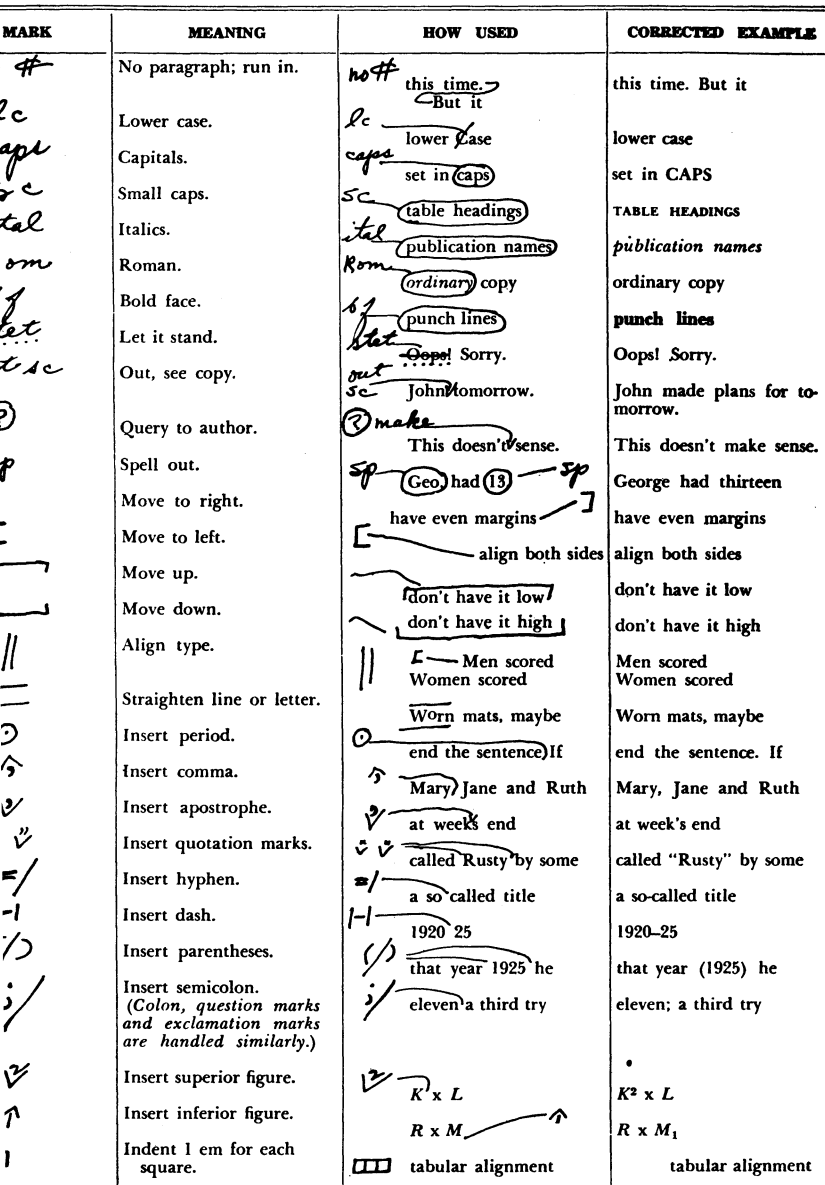 MARK MEANING HOW USED CORRECTED EXAMPLE
# No paragraph; run in. no # this time. this time. But it
But it
lc Lower case. lc lower Case lower case
caps Capitals. caps set in caps set in CAPS
sc Small caps. sc table headings TABLE HEADINGS
ital Italics. ital publication names publication names
rom Roman. Rom ordinary copy ordinary copy
bf Bold face. bf punch lines punch lines
stet Let it stand. stet Oops! Sorry. Oops! Sorry.
out sc Out, see copy. out sc John tomorrow. John made plans for to-
morrow.
? Query to author. ? make This doesn't sense. This doesn't make sense.
sp Spell out. sp Geo. had 13 sp George had thirteen
Move to right. have even margins ] have even margins
[ Move to left. [ align both sides align both sides
Move up. don't have it low don't have it low
Move down. don't have it high don't have it high
|| Align type. || [ Men scored Men scored
Women scored Women scored
Straighten line or letter. Worn mats, maybe Worn mats, maybe
Insert period. end the sentence If end the sentence. If
Insert comma. , Mary Jane and Ruth Mary, Jane and Ruth
Insert apostrophe. at weeks end at week's end
" Insert quotation marks. called Rusty by some called "Rusty" by some
=/ Insert hyphen. =/ a so called title a so-called title
-| Insert dash. |-| 1920 25 1920–25
(/) Insert parentheses. (/) that year 1925 he that year (1925) he
;/ Insert semicolon. ;/ eleven a third try eleven; a third try
(Colon, question marks
and exclamation marks
are handled similarly.)
2 Insert superior figure. 2 K x L K² x L
1 Insert inferior figure. R x M 1 R x M₁
Indent 1 em for each
square. tabular alignment tabular alignment